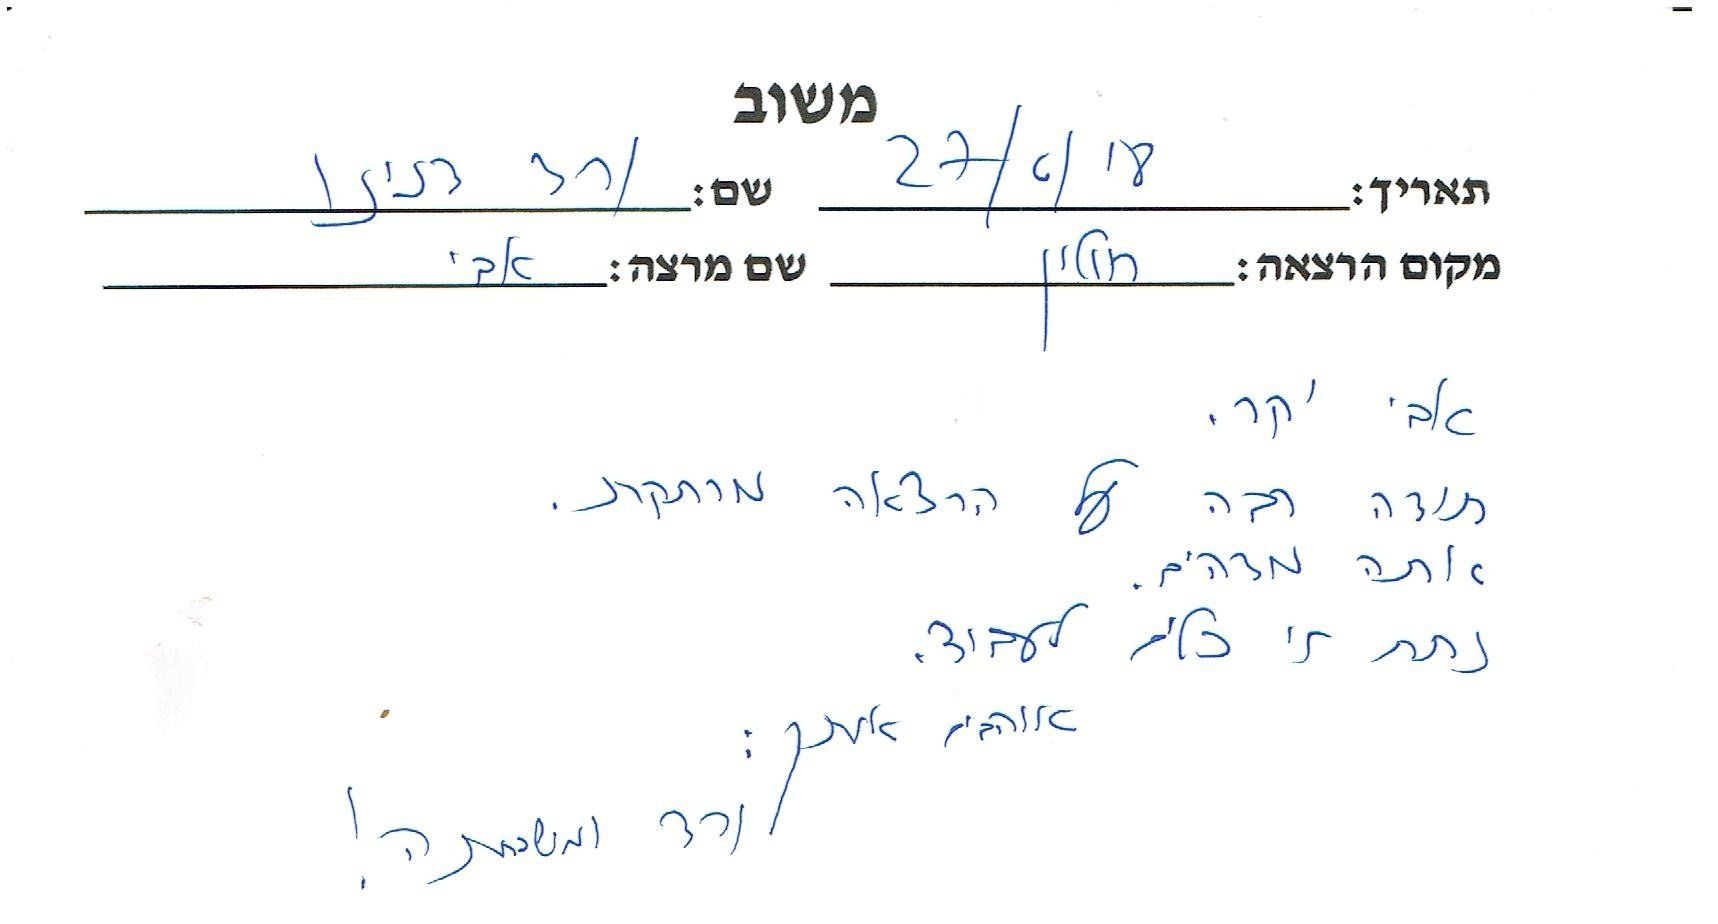 משוב
תאריך: 27/6/ שם: ורד
מקום הרצאה: חולון שם מרצה: אבי
אבי יקר.
תודה רבה על הרצאה מרתקת.
אתה מדהים.
נתת לי כלים לעבוד.
אוהבים אותך:
ורד ומשפחתה!